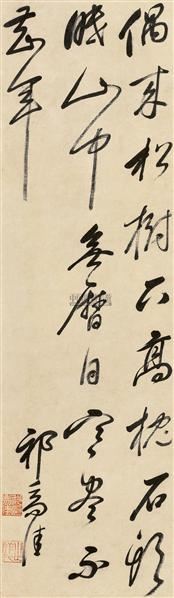 偶来松树下高枕石頭
眠山中無曆日寒尽不
知年
祁豸佳